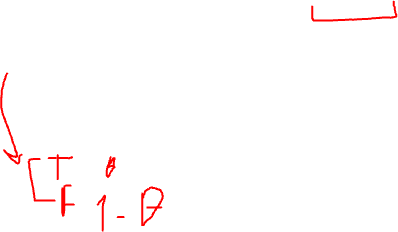 T θ
F 1-θ